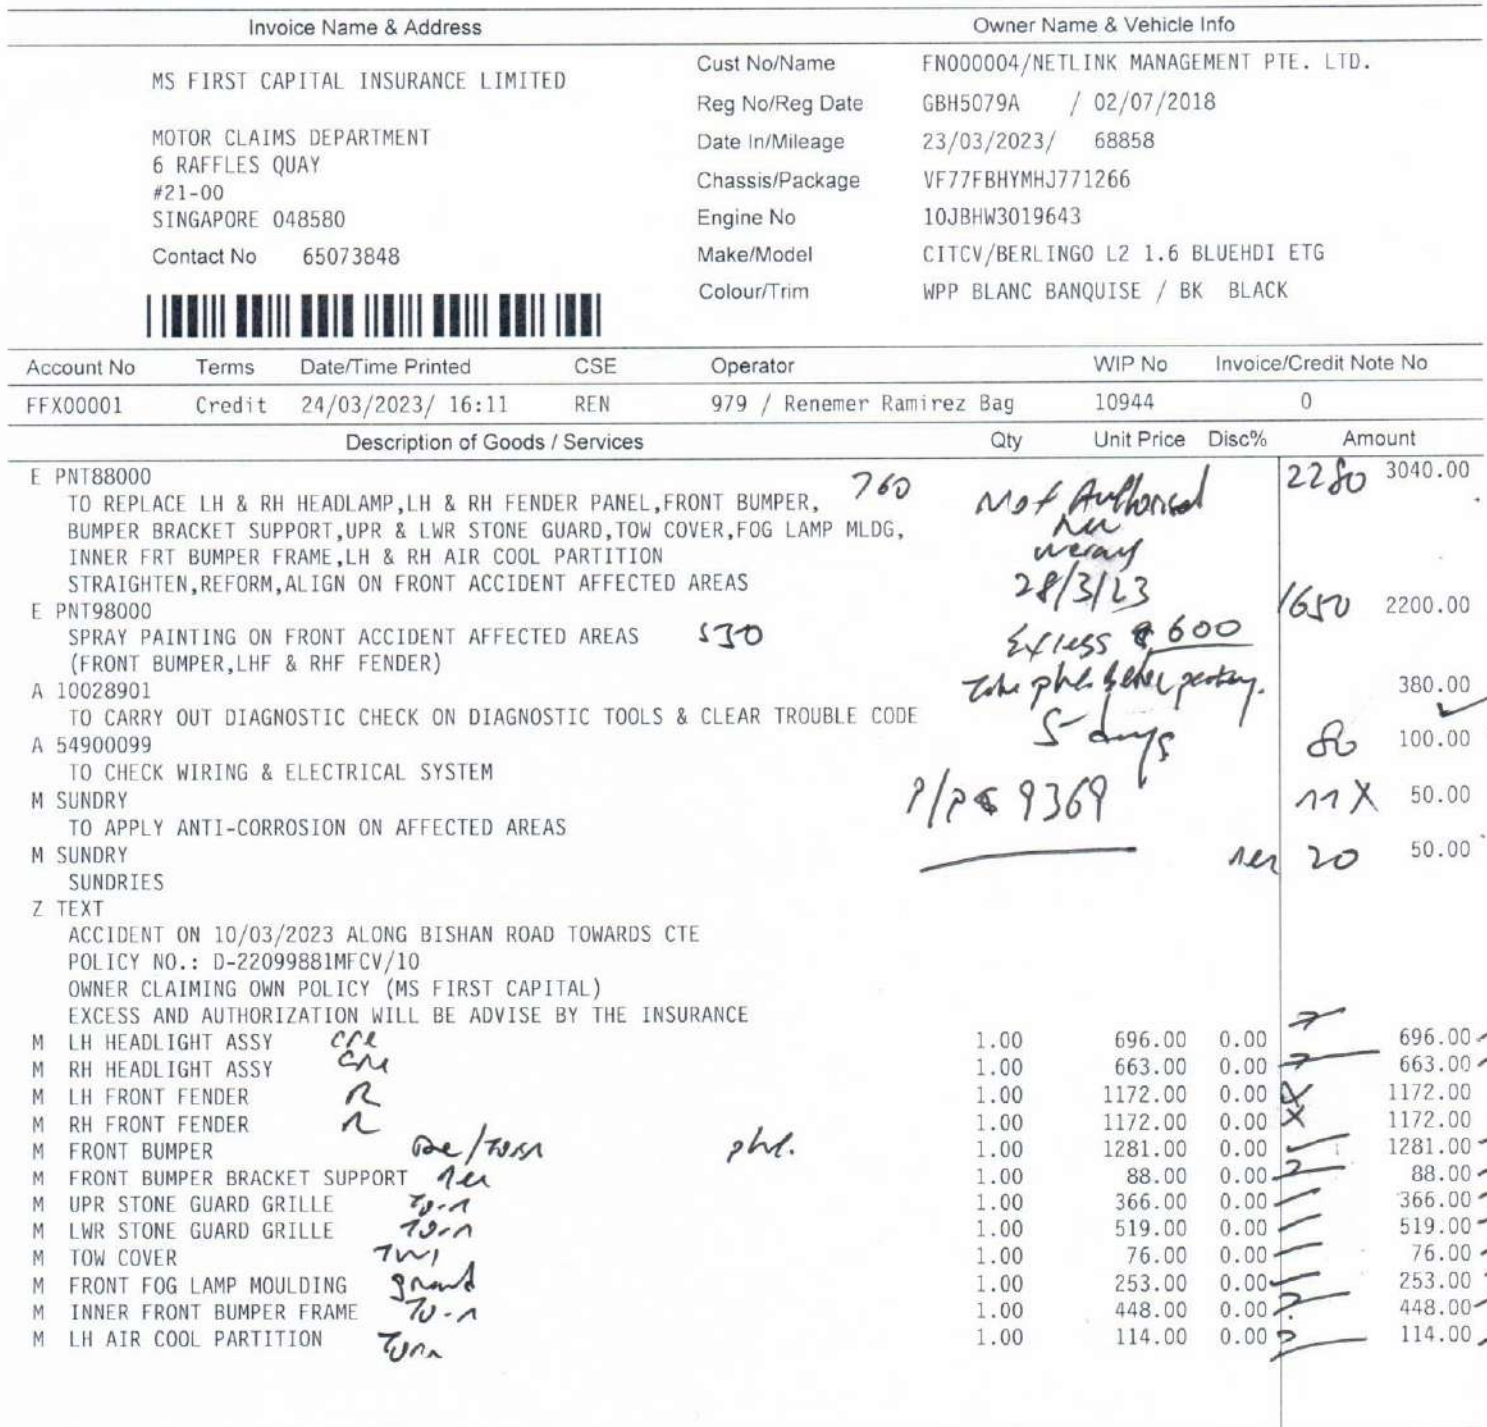 Invoice Name & Address
Owner Name & Vehicle Info
MS FIRST CAPITAL INSURANCE LIMITED
MOTOR CLAIMS DEPARTMENT
6 RAFFLES QUAY
#21-00
SINGAPORE 048580
Contact No 65073848
Cust No/Name FN000004/NETLINK MANAGEMENT PTE. LTD.
Reg No/Reg Date GBH5079A / 02/07/2018
Date In/Mileage 23/03/2023/ 68858
Chassis/Package VF77FBHYMHJ771266
Engine No 10JBHW3019643
Make/Model CITCV/BERLINGO L2 1.6 BLUEHDI ETG
Colour/Trim WPP BLANC BANQUISE / BK BLACK
Account No Terms Date/Time Printed CSE Operator WIP No Invoice/Credit Note No
FFX00001 Credit 24/03/2023/ 16:11 REN 979 / Renemer Ramirez Bag 10944 0
Description of Goods / Services Qty Unit Price Disc% Amount
E PNT88000 760 2280 3040.00
TO REPLACE LH & RH HEADLAMP,LH & RH FENDER PANEL,FRONT BUMPER, Not Authorised
BUMPER BRACKET SUPPORT,UPR & LWR STONE GUARD,TOW COVER,FOG LAMP MLDG,
INNER FRT BUMPER FRAME,LH & RH AIR COOL PARTITION
STRAIGHTEN,REFORM,ALIGN ON FRONT ACCIDENT AFFECTED AREAS 28/3/23
E PNT98000 1650 2200.00
SPRAY PAINTING ON FRONT ACCIDENT AFFECTED AREAS 530 Excess $ 600
(FRONT BUMPER,LHF & RHF FENDER)
A 10028901 380.00
TO CARRY OUT DIAGNOSTIC CHECK ON DIAGNOSTIC TOOLS & CLEAR TROUBLE CODE
5 days
A 54900099 80 100.00
TO CHECK WIRING & ELECTRICAL SYSTEM
M SUNDRY P/P$ 9369 X 50.00
TO APPLY ANTI-CORROSION ON AFFECTED AREAS
M SUNDRY 20 50.00
SUNDRIES
Z TEXT
ACCIDENT ON 10/03/2023 ALONG BISHAN ROAD TOWARDS CTE
POLICY NO.: D-22099881MFCV/10
OWNER CLAIMING OWN POLICY (MS FIRST CAPITAL)
EXCESS AND AUTHORIZATION WILL BE ADVISE BY THE INSURANCE
M LH HEADLIGHT ASSY 1.00 696.00 0.00 696.00
M RH HEADLIGHT ASSY 1.00 663.00 0.00 663.00
M LH FRONT FENDER R 1.00 1172.00 0.00 X 1172.00
M RH FRONT FENDER R 1.00 1172.00 0.00 X 1172.00
M FRONT BUMPER 1.00 1281.00 0.00 1281.00
M FRONT BUMPER BRACKET SUPPORT 1.00 88.00 0.00 88.00
M UPR STONE GUARD GRILLE 1.00 366.00 0.00 366.00
M LWR STONE GUARD GRILLE 1.00 519.00 0.00 519.00
M TOW COVER 1.00 76.00 0.00 76.00
M FRONT FOG LAMP MOULDING 1.00 253.00 0.00 253.00
M INNER FRONT BUMPER FRAME 1.00 448.00 0.00 448.00
M LH AIR COOL PARTITION 1.00 114.00 0.00 114.00